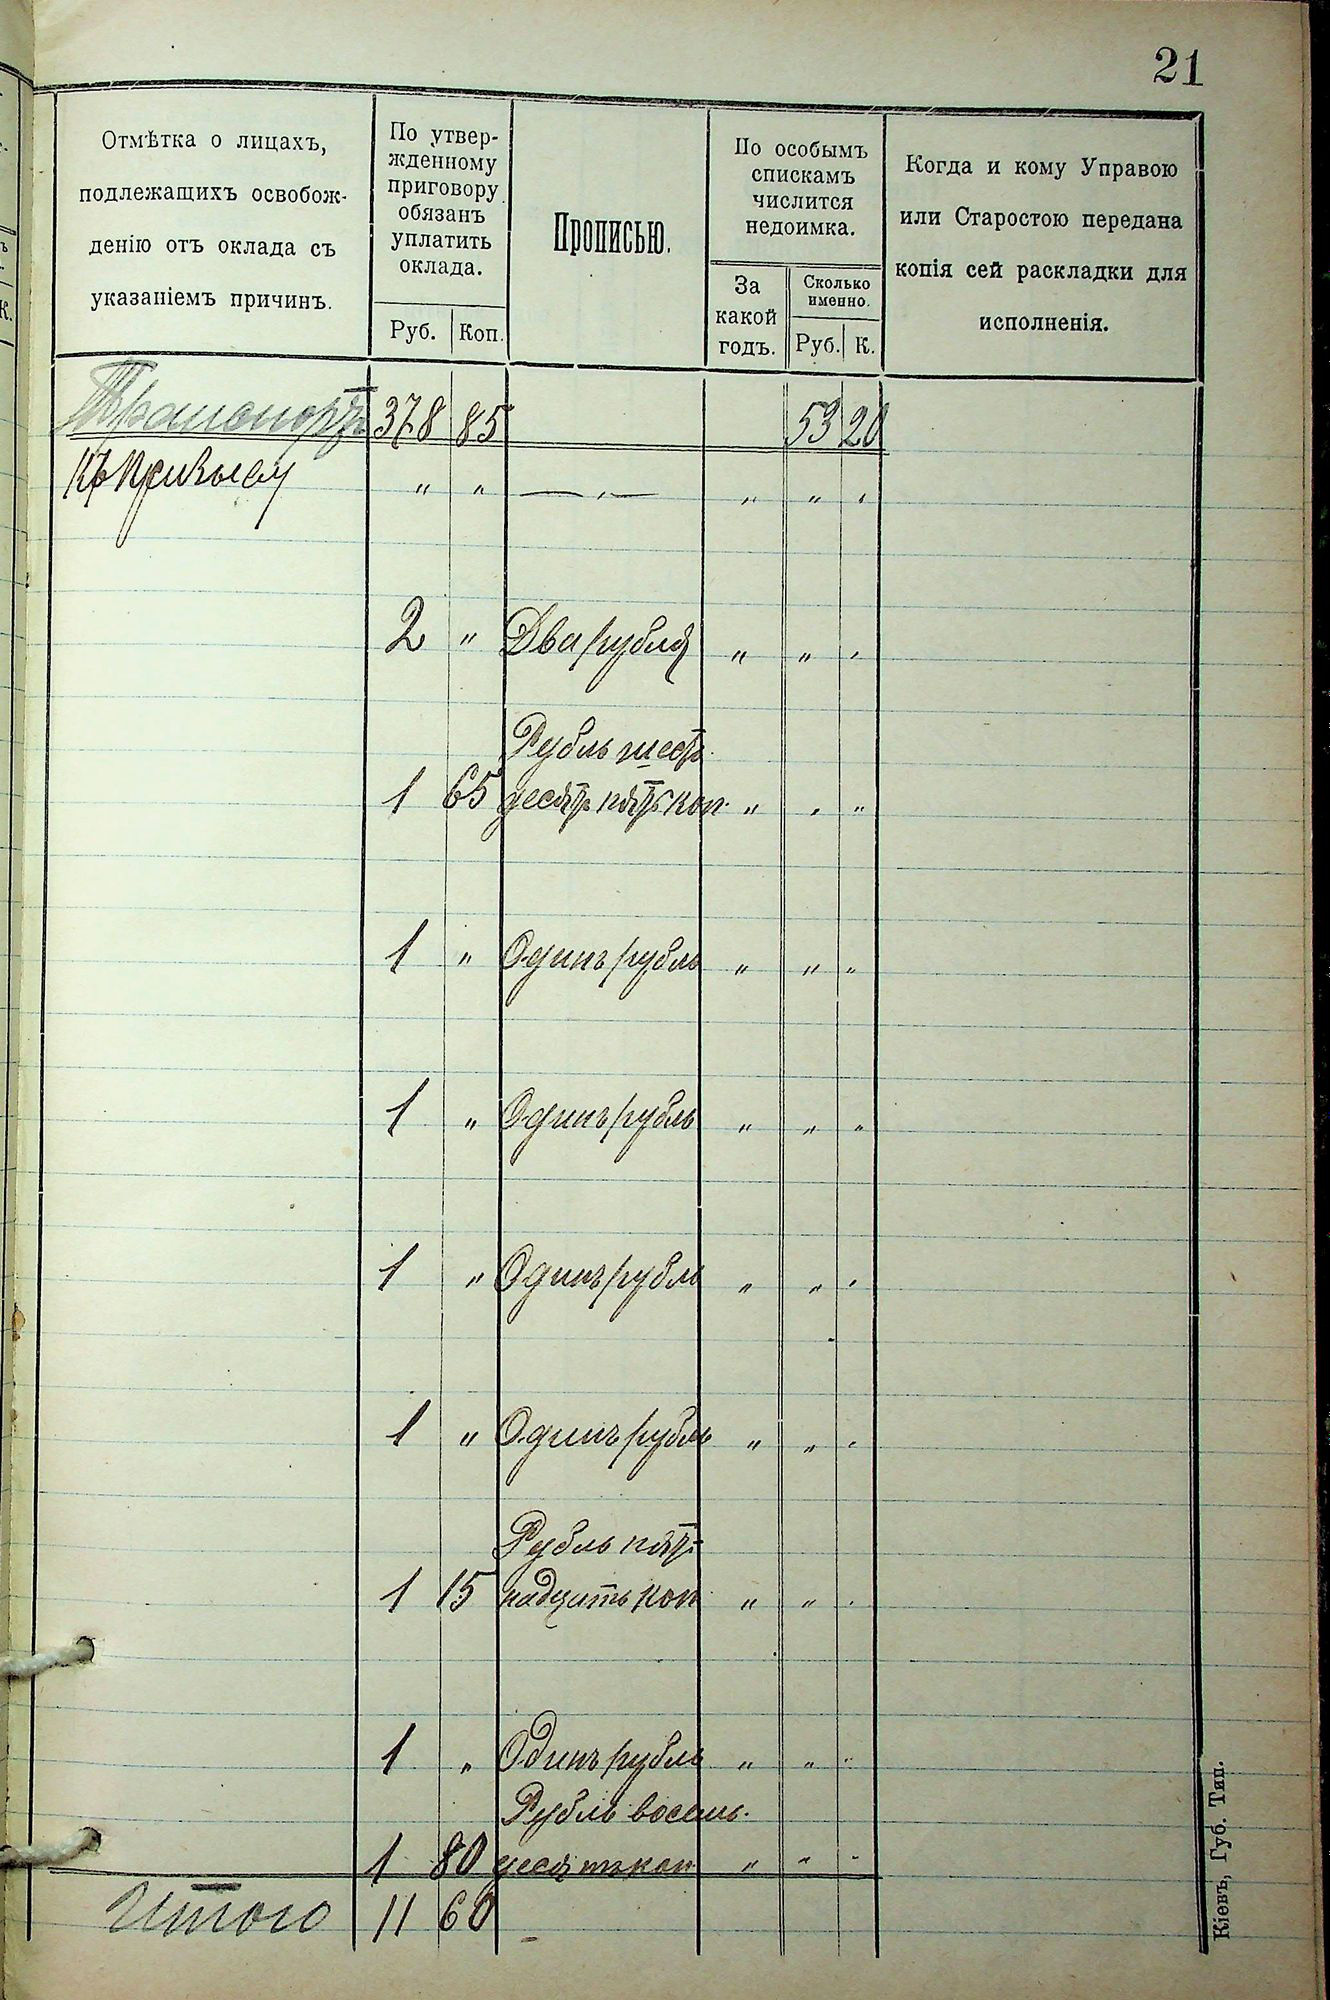 21
Отмѣтка о лицахъ,
подлежащихъ освобож-
денію отъ оклада съ
указаніемъ причинъ.
По утвер-
жденному
приговору
обязанъ
уплатить
оклада.
Руб. Коп.
Прописью.
По особымъ
спискамъ
числится
недоимка.
За
какой
годъ.
Сколько
именно.
Руб. К.
Когда и кому Управою
или Старостою передана
копія сей раскладки для
исполненія.
Транспортъ 378 85 53 20
" " — " — " " "
2 " Два рубля " " "
Рубль шесть
1 65 десятъ пять коп. " " "
1 " Одинъ рубль " " "
1 " Одинъ рубль " " "
1 " Одинъ рубль " " "
1 " Одинъ рубль " " "
Рубль пят-
1 15 надцать коп " " "
1 " Одинъ рубль " " "
Рубль восемь-
1 80 десятъ коп " " "
Итого 11 60
Кіевъ, Губ. Тип.